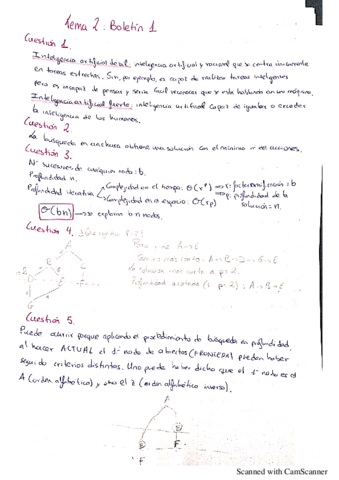 Tema 2: Boletín 1
Cuestión 1.
Inteligencia artificial débil: inteligencia artificial y racional que se centra únicamente
en tareas estrechas. Siri, por ejemplo, es capaz de realizar tareas inteligentes
pero es incapaz de pensar y sería fácil reconocer que se está hablando con una máquina.
Inteligencia artificial fuerte: inteligencia artificial capaz de igualar o exceder
la inteligencia de los humanos.
Cuestión 2.
La búsqueda en anchura obtiene una solución con el mínimo nº de acciones.
Cuestión 3.
Nº sucesores de cualquier nodo: b.
Profundidad n.
Profundidad iterativa
Complejidad en el tiempo: O(r^p) → r: factor ramificación = b
Complejidad en el espacio: O(rp) → p: profundidad de la
solución = n.
O(bn) → se exploran b·n nodos.
Cuestión 4.
A
B
D
E
G
A → B → E
Cuestión 5.
Puede ocurrir porque aplicando el procedimiento de búsqueda en profundidad
al hacer ACTUAL el 1er nodo de abiertos (FRONTERA) pueden haber
seguido criterios distintos. Uno puede haber dicho que el 1er nodo es el
A (orden alfabético), y otro el Z (orden alfabético inverso).
A
B
D
F
F
Scanned with CamScanner